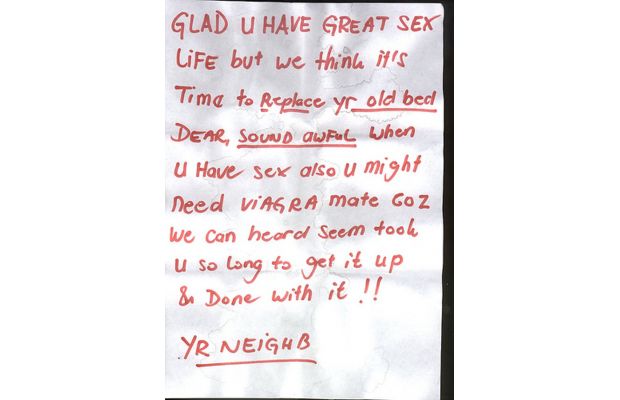 GLAD U HAVE GREAT SEX
LiFE but we think it's
Time to Replace yr old bed
DEAR, SOUND AWFUL when
U Have sex also u might
need ViAGRA mate COZ
We can heard seem took
U so long to get it up
& Done with it !!
YR NEIGHB